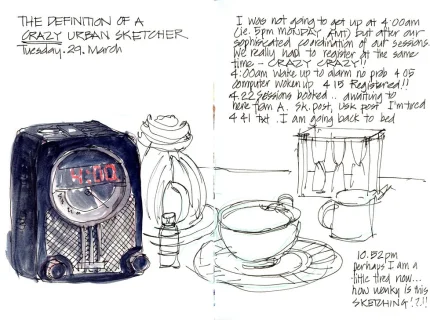 THE DEFINITION OF A
CRAZY URBAN SKETCHER
Tuesday. 29. March
I was not going to get up at 4:00am
(ie. 5pm MONDAY but after our
sophisticated coordination of our sessions.
We really had to register at the same
time - CRAZY CRAZY!!
4:00am wake up to alarm no prob 4 05
computer woken up 4 15 Registered!!
4.22 Sessions booked.. awaiting to
here from A. Sk. post, Usk post I'm tired
4 41 txt. I am going back to bed
4:00
10.52pm
perhaps I am a
little tired now...
how wonky is this
SKETCHING!?!!